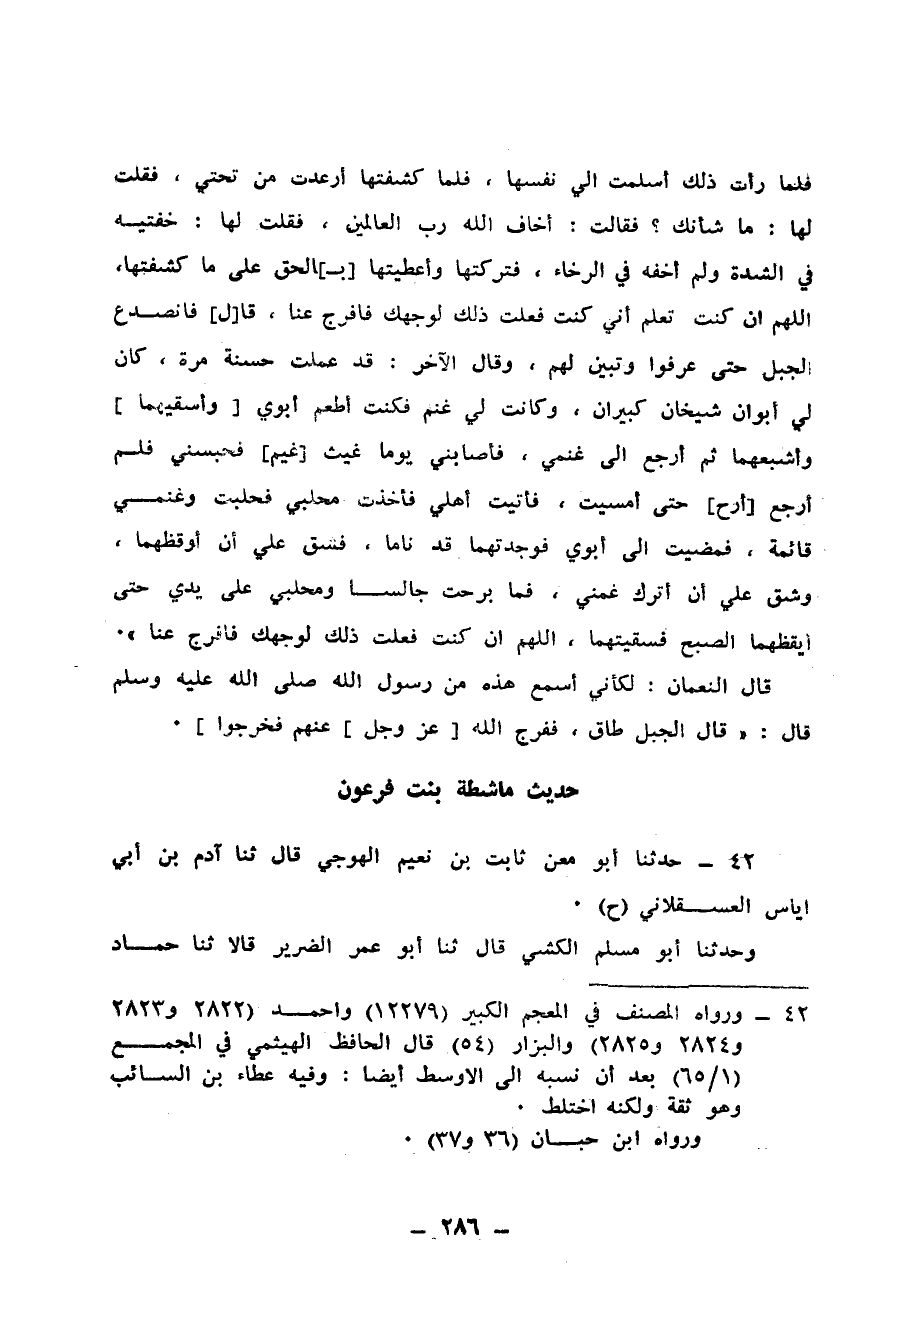 فلما رأت ذلك أسلمت الي نفسها ، فلما كشفتها أرعدت من تحتي ، فقلت
لها : ما شأنك ؟ فقالت : أخاف الله رب العالمين ، فقلت لها : خفتيه
في الشدة ولم أخفه في الرخاء ، فتركتها وأعطيتها [بـ]الحق على ما كشفتها،
اللهم ان كنت تعلم أني كنت فعلت ذلك لوجهك فافرج عنا ، قا[ل] فانصدع
الجبل حتى عرفوا وتبين لهم ، وقال الآخر : قد عملت حسنة مرة ، كان
لي أبوان شيخان كبيران ، وكانت لي غنم فكنت أطعم أبوي [ وأسقيهما ]
وأشبعهما ثم أرجع الى غنمي ، فأصابني يوما غيث [غيم] فحبسني فلم
أرجع [أرح] حتى أمسيت ، فأتيت أهلي فأخذت محلبي فحلبت وغنمي
قائمة ، فمضيت الى أبوي فوجدتهما قد ناما ، فشق علي أن أوقظهما ،
وشق علي أن أترك غمني ، فما برحت جالسا ومحلبي على يدي حتى
أيقظهما الصبح فسقيتهما ، اللهم ان كنت فعلت ذلك لوجهك فافرج عنا » ٠
قال النعمان : لكأني أسمع هذه من رسول الله صلى الله عليه وسلم
قال : « قال الجبل طاق ، ففرج الله [ عز وجل ] عنهم فخرجوا ] ٠
حديث ماشطة بنت فرعون
٤٢ ــ حدثنا أبو معن ثابت بن نعيم الهوجي قال ثنا آدم بن أبي
اياس العسقلاني (ح) ٠
وحدثنا أبو مسلم الكشي قال ثنا أبو عمر الضرير قالا ثنا حماد
٤٢ ــ ورواه المصنف في المعجم الكبير (١٢٢٧٩) واحمد (٢٨٢٢ و٢٨٢٣
و٢٨٢٤ و٢٨٢٥) والبزار (٥٤) قال الحافظ الهيثمي في المجمع
(٦٥/١) بعد أن نسبه الى الاوسط أيضا : وفيه عطاء بن السائب
وهو ثقة ولكنه اختلط ٠
ورواه ابن حبان (٣٦ و٣٧) ٠
ــ ٢٨٦ ــ